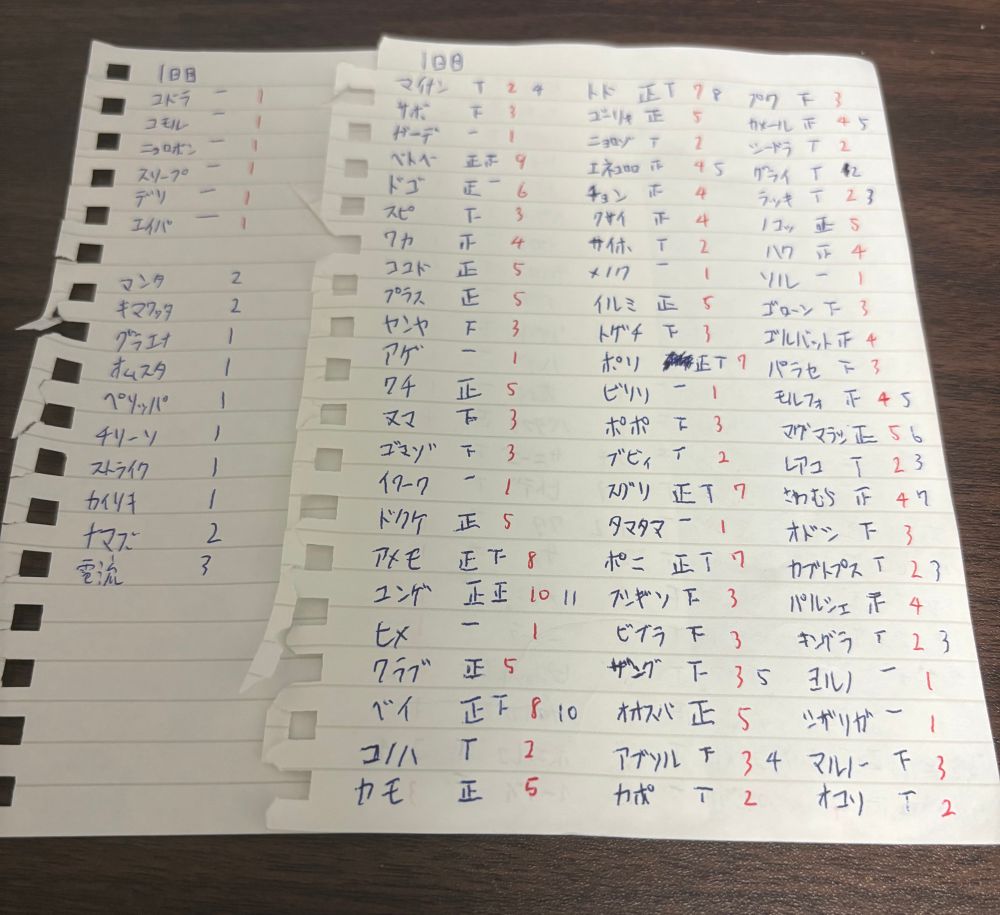 1日目
コドラ 一 1
コモル 一 1
ニョロボン 一 1
スリープ 一 1
デリ 一 1
エイパ 一 1
マンタ 2
キマワッタ 2
グラエナ 1
オムスタ 1
ペリッパ 1
チリーン 1
ストライク 1
カイリキ 1
ナマズ 2
電流 3
1日目
マイナン T 2 4
サボ 下 3
ガーデ 一 1
ベトベ 正正 9
ドゴ 正一 6
スピ 下 3
ワカ 正 4
ココド 正 5
プラス 正 5
ヤンヤ 下 3
アゲ 一 1
クチ 正 5
ヌマ 下 3
ゴマゾ 下 3
イワーク 一 1
ドクケ 正 5
アメモ 正下 8
ユンゲ 正正 10 11
ヒメ 一 1
クラブ 正 5
ベイ 正下 8 10
コノハ T 2
カモ 正 5
トド 正T 7 8
ゴーリキ 正 5
ニョロゾ T 2
エネコロロ 正 4 5
チョン 正 4
クサイ 正 4
サイホ T 2
メノク 一 1
イルミ 正 5
トゲチ 下 3
ポリ 正T 7
ビリリ 一 1
ポポ 下 3
ブビィ T 2
ズグリ 正T 7
タマタマ 一 1
ポニ 正T 7
ズガイ 下 3
ビブラ 下 3
ザング 下 3 5
オオスバ 正 5
アブソル 下 3 4
カポ T 2
プク 下 3
カメール 正 4 5
シードラ T 2
グライ T 2
ラッキ T 2 3
ノコッ 正 5
ハク 正 4
ソル 一 1
ゴローン 下 3
ゴルバット 正 4
パラセ 下 3
モルフォ 正 4 5
マグマラッ 正 5 6
レアコ T 2 3
さわむら 正 4 7
オドシ 下 3
カブトプス T 2 3
パルシェ 正 4
キングラ T 2 3
ヨルノ 一 1
シザリガ 一 1
マルノー 下 3
オコリ T 2